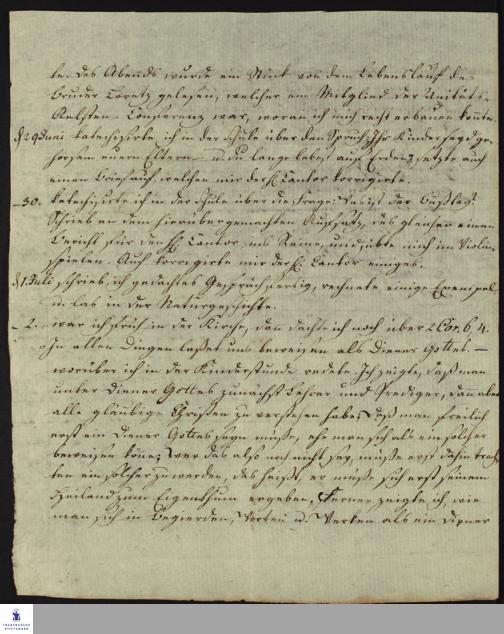 te. Des Abends wurde ein Stück von dem Lebenslauf des
Bruder Loretz gelesen, welcher ein Mitglied der Unitäts-
Aeltesten-Conferenz war, woran ich mich recht erbauen konte.
d 29 Juni katechisirte ich in der Schule über den Spruch: Ihr Kinder seyd ge-
horsam euern Eltern – u. du lange lebest auf Erden; setzte auch
einen Brief auf, welchen mir der H. Cantor korrigirte.
– 30. katechisirte ich in der Schule über die Frage: Was ist der
Schrieb an dem hierüber gemachten Aufsatz, des gleichen einen
Bericht für den H. Cantor, ins Reine, und übte mich im Violin-
spielen. Auch korrigirte mir der H. Cantor einiges.
d 1. Juli schrieb ich gedachtes Gespräch fertig, rechnete einige Exempel
u. las in der Naturgeschichte.
– 2. war ich früh in der Kirche, dan dachte ich noch über 2 Cor. 6, 4.
In allen Dingen lasset uns beweisen als Diener Gottes. –
worüber ich in der Kinderstunde redete. Ich zeigte, daß man
unter Diener Gottes zunächst Lehrer und Prediger, dann aber
alle gläubige Christen zu verstehen habe; Daß man freilich
erst ein Diener Gottes seyn müße, ehe man sich als ein solcher
beweisen köne; Wer das also noch nicht sey, müße erst dahin trach-
ten ein solcher zu werden, das heißt, er müße sich erst seinem
Heiland zum Eigenthum ergeben, Ferner zeigte ich, wie
man sich in Begierden, Worten u. Werken als ein Diener
FRANCKESCHE
STIFTUNGEN